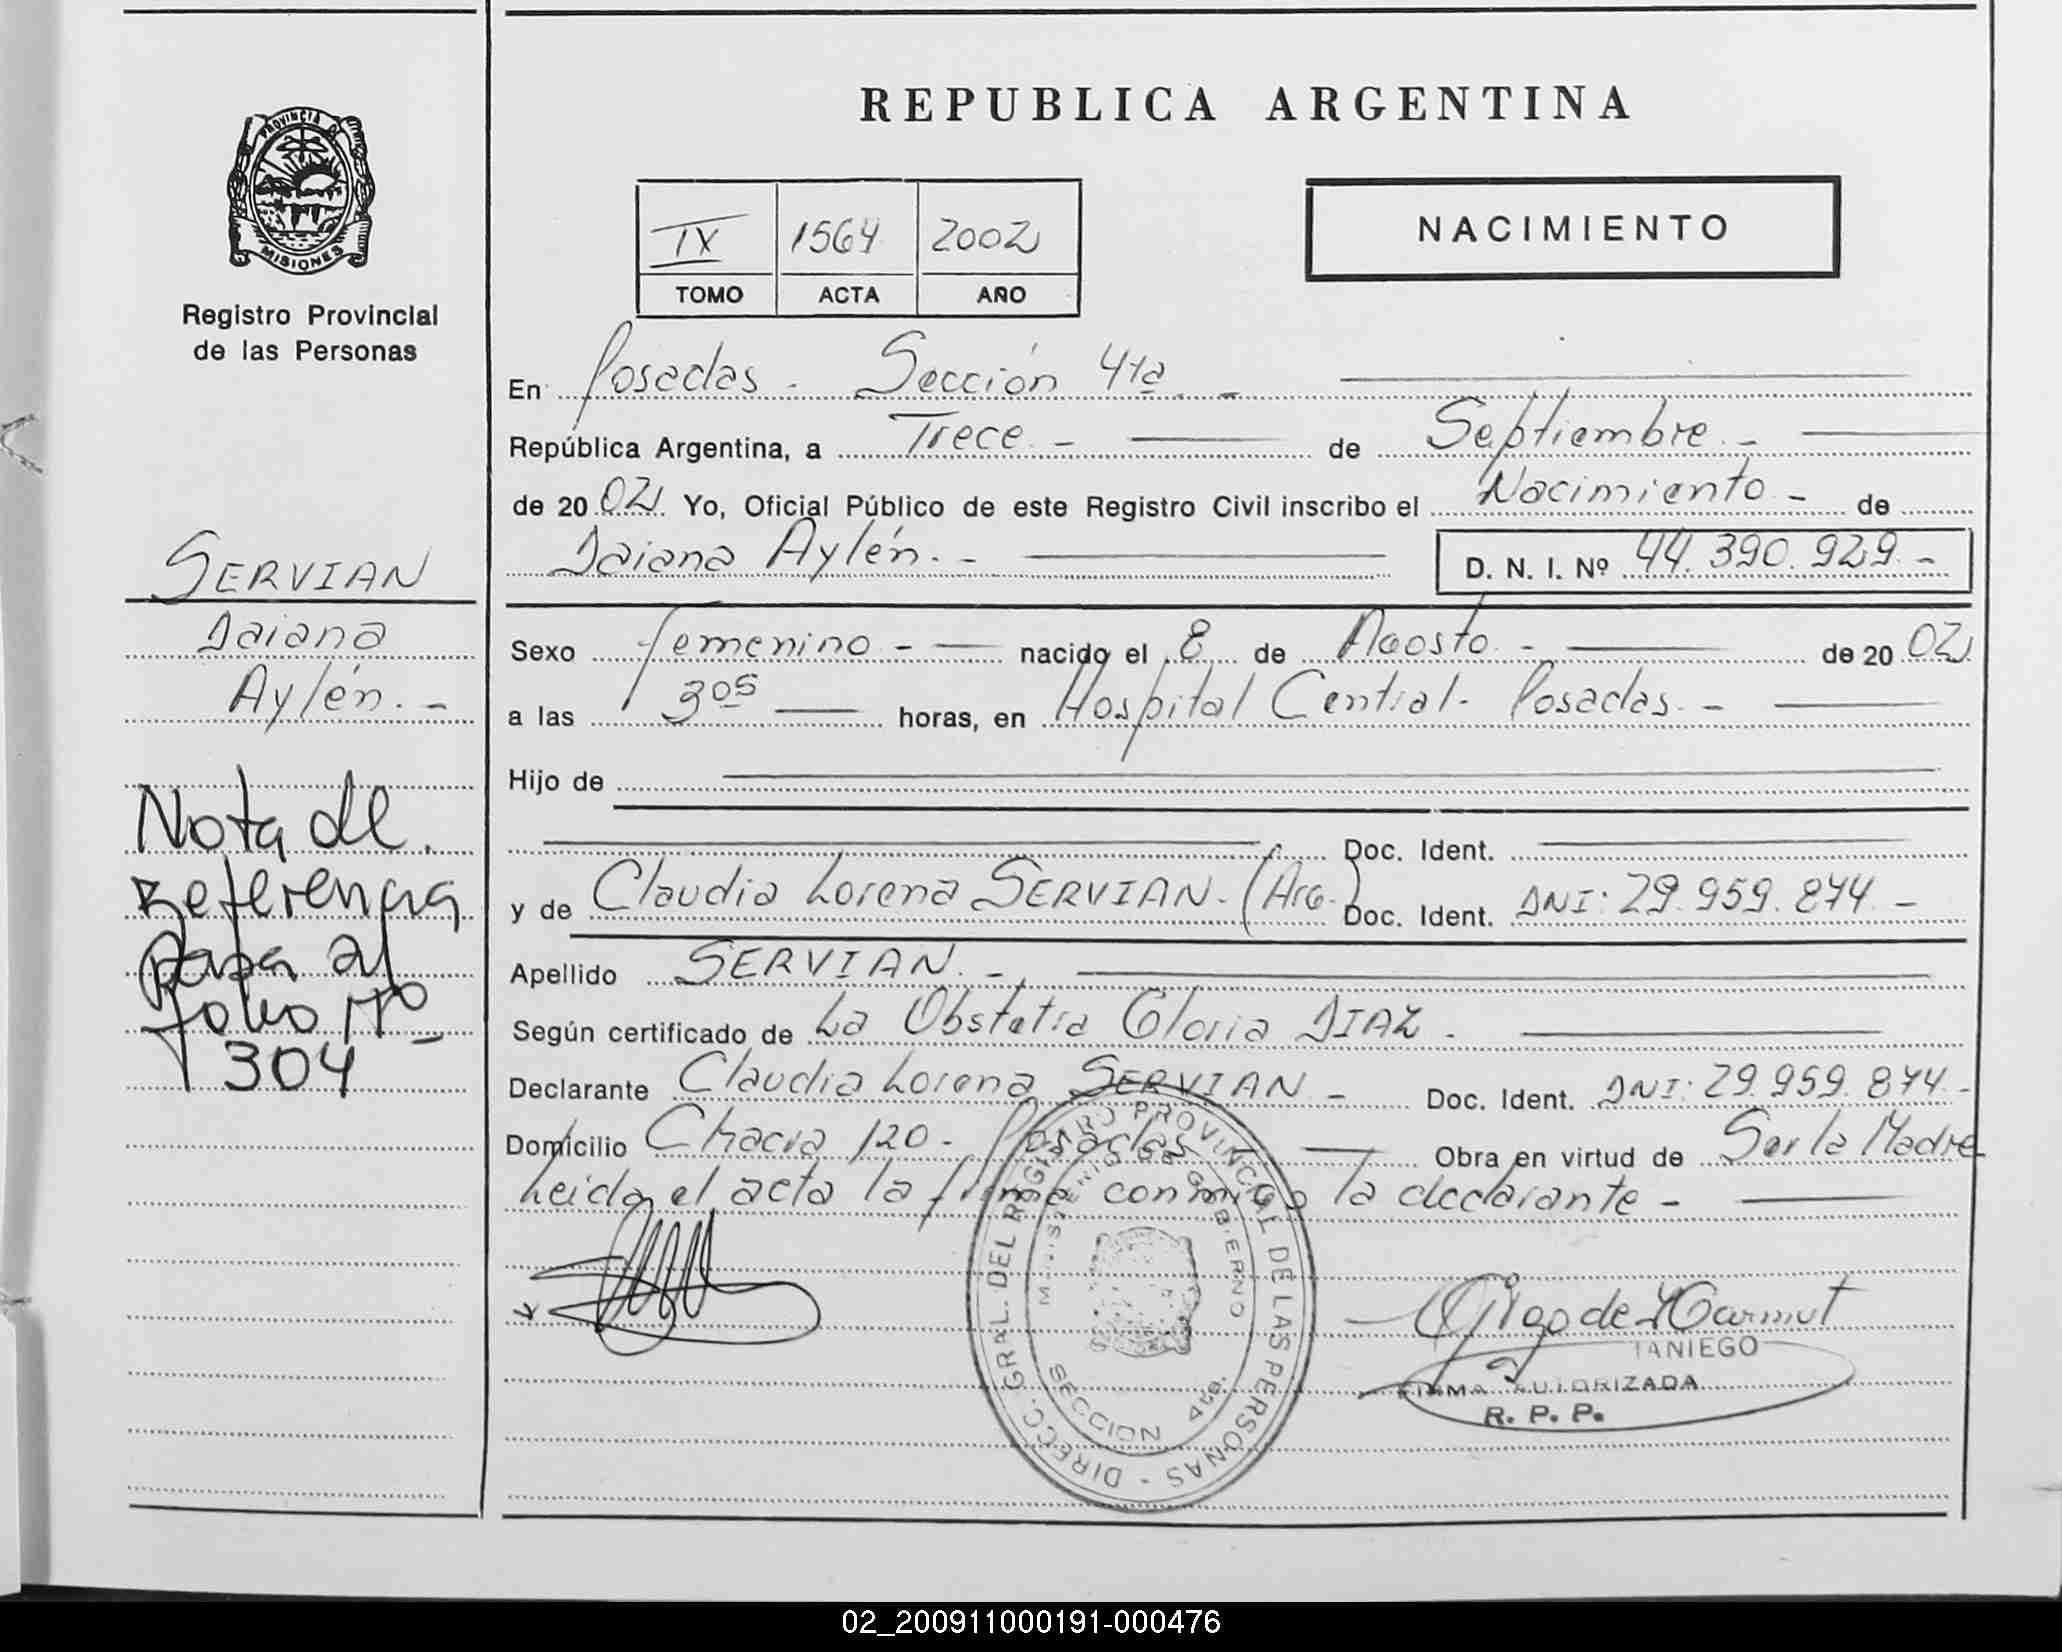 REPUBLICA ARGENTINA
PROVINCIA D
MISIONES
Registro Provincial
de las Personas
IX 1564 2002
TOMO ACTA AÑO
NACIMIENTO
En Posadas - Sección 4ta. -
República Argentina, a Trece - de Septiembre. -
de 20 02 Yo, Oficial Público de este Registro Civil inscribo el Nacimiento - de
Daiana Aylén. - D. N. I. Nº 44.390.929. -
SERVIAN
Daiana
Aylén. -
Sexo femenino - nacido el 8 de Agosto. - de 20 02
a las 3 05 horas, en Hospital Central - Posadas. -
Hijo de
Doc. Ident.
y de Claudia Lorena SERVIAN. (Arg.) Doc. Ident. DNI: 29.959.874 -
Apellido SERVIAN. -
Según certificado de La Obstetra Gloria DIAZ.
Declarante Claudia Lorena SERVIAN - Doc. Ident. DNI: 29.959.874 -
Domicilio Chacra 120 - Posadas - Obra en virtud de Ser la Madre
Leida el acta la firma conmigo la declarante -
Nota de
Referencia
pasa al
folio Nº
304 -
DIRECC. GRAL. DEL REGISTRO PROVINCIAL DE LAS PERSONAS -
MINISTERIO DE GOBIERNO
SECCION 4ta.
FIRMA AUTORIZADA
R. P. P.
02_200911000191-000476